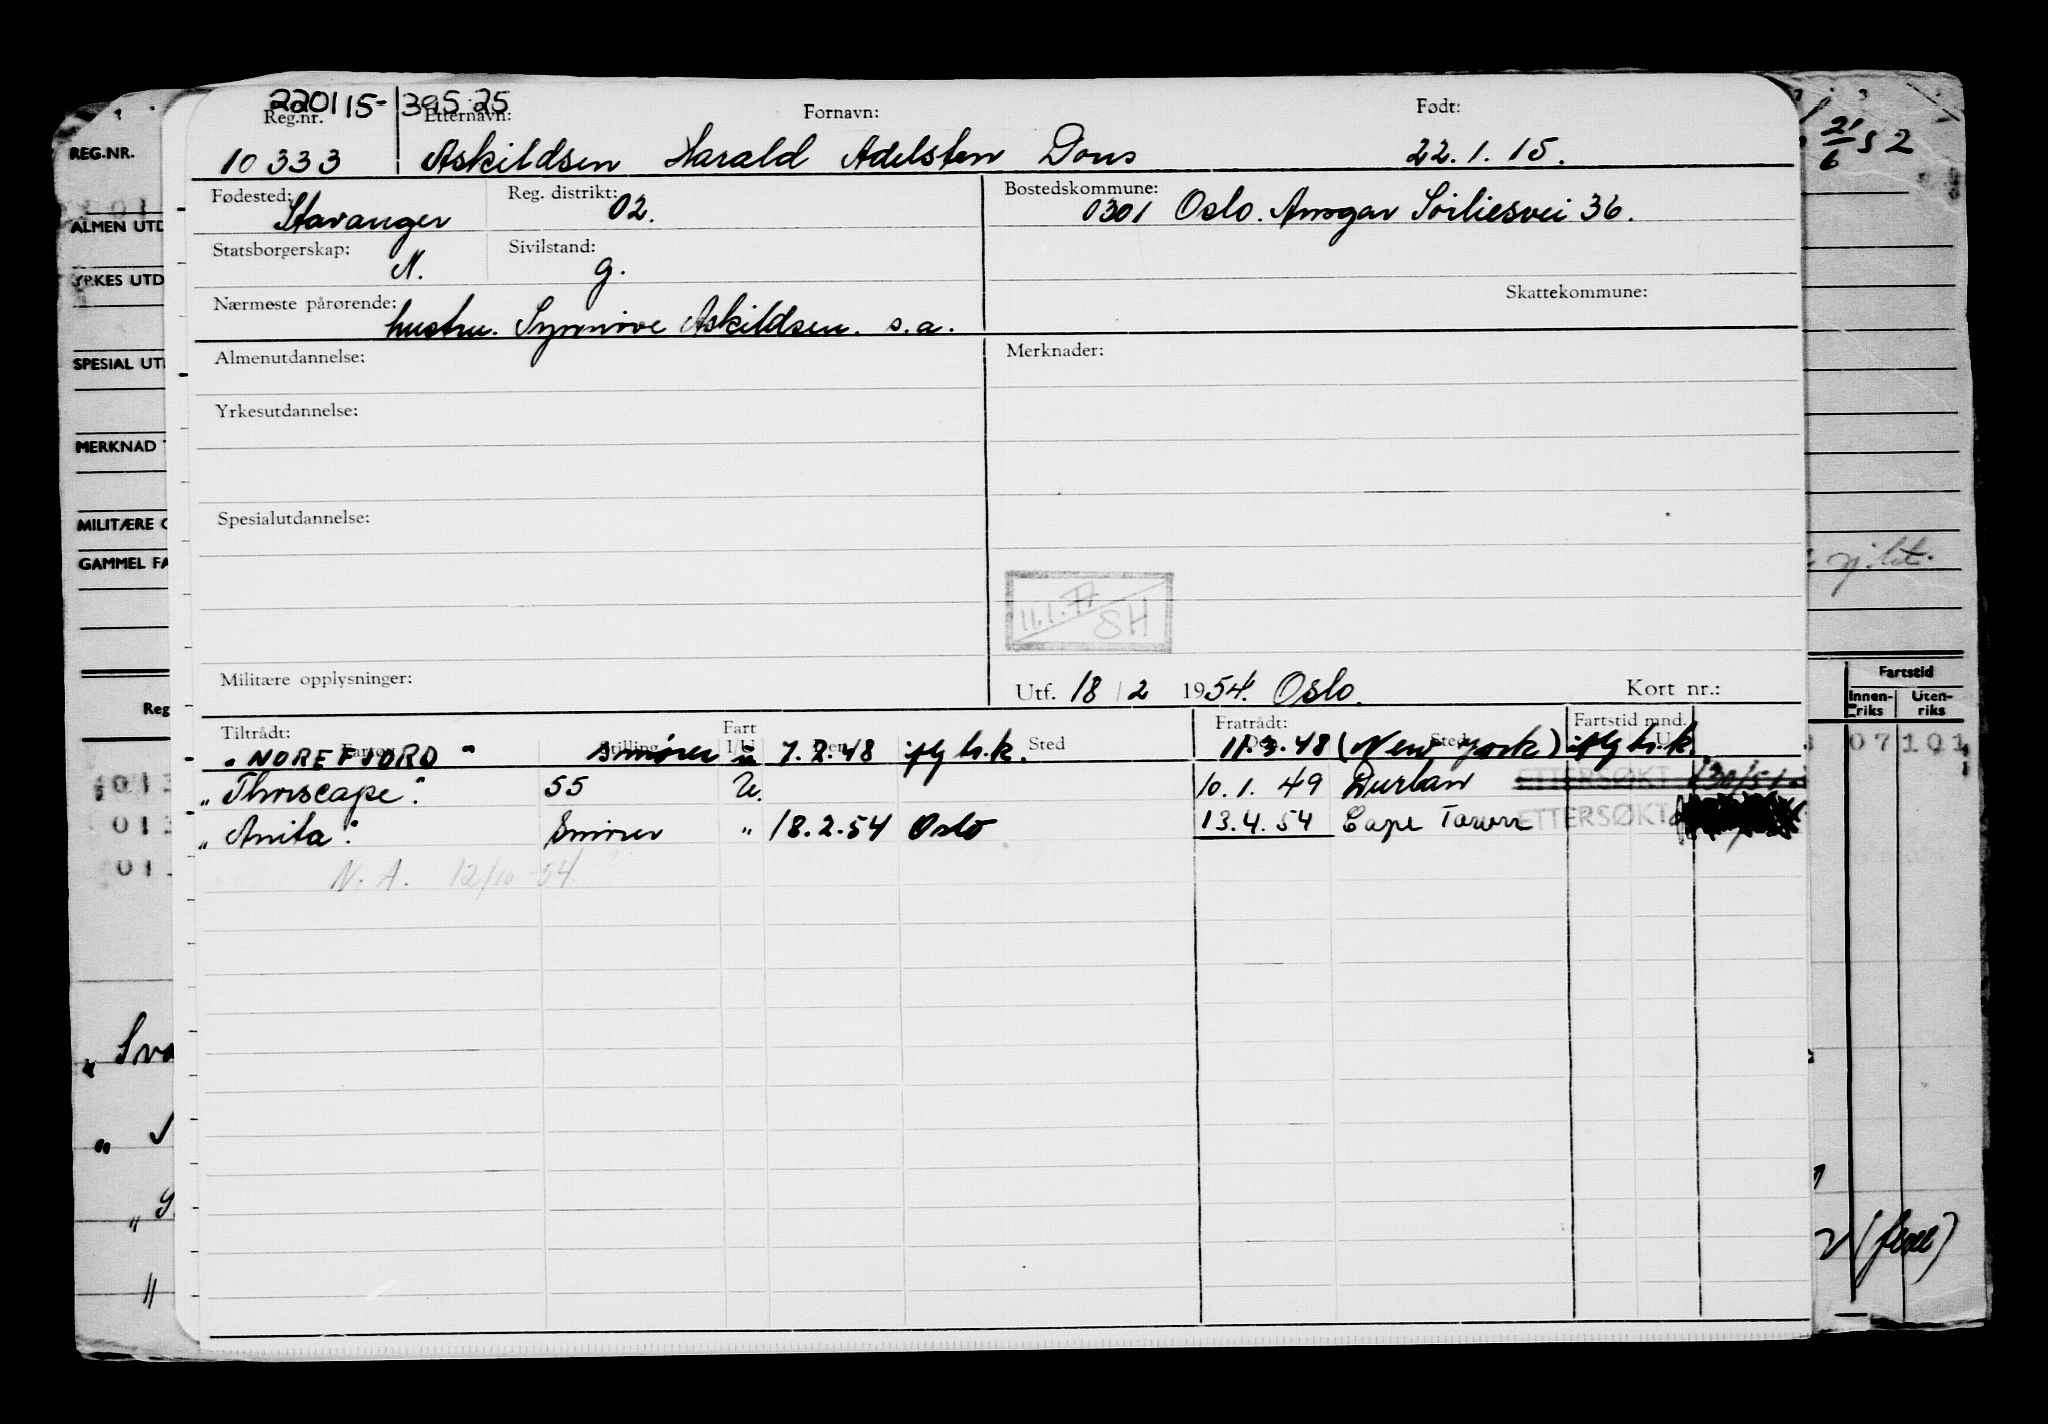 220115-39525
Reg.nr. Etternavn: Fornavn: Født:
10333 Askildsen Harald Adelsten Dons 22.1.15.
REG.NR.
21/6 52
Fødested: Stavanger Reg. distrikt: 02. Bostedskommune: 0301 Oslo. Ansgar Sörliesvei 36.
ALMEN UTD
Statsborgerskap: N. Sivilstand: g.
YRKES UTD
Nærmeste pårørende: hustru. Synnöve Askildsen. s.a. Skattekommune:
SPESIAL UT
Almenutdannelse: Merknader:
Yrkesutdannelse:
MERKNAD
Spesialutdannelse:
MILITÆRE
GAMMEL FA
11.1.77 SH
Militære opplysninger: Utf. 18/2 1954. Oslo. Kort nr.:
Fartstid
Innen-riks Uten-riks
Reg
Tiltrådt: Fart Fratrådt: Fartstid mnd.
Fartøy Stilling I/U Den Sted Den Sted U
"NOREFJORD" smører u 7.2.48 iflg h.k. 11.3.48 (New York) iflg h.k.
07 101
"Thorscape". 55 U. 10.1.49 Durban ETTERSØKT
"Anita". Smører " 18.2.54 Oslo 13.4.54 Cape Town ETTERSØKT
N.A. 12/10-54.
013
013
013